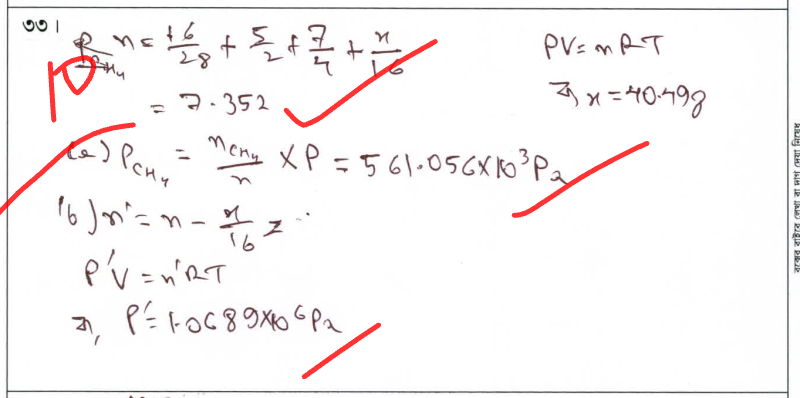 ৩৩।
n = 16/28 + 5/2 + 7/4 + x/16
= 7.352
PV = nRT
বা, x = 40.49g
10
(a) P_CH₄ = n_CH₄/n × P = 561.056×10³ Pa
(b) n' = n - x/16 = ...
P'V = n'RT
বা, P' = 1.0689×10⁶ Pa
বক্সের বাইরে লেখা বা দাগ দেয়া নিষেধ